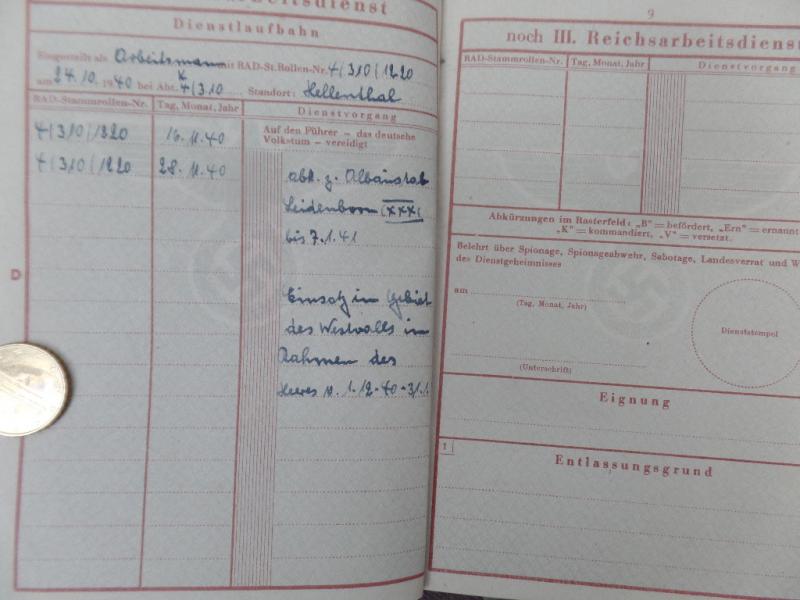 eitsdienst
Dienstlaufbahn
Eingestellt als Arbeitsmann mit RAD-St.Rollen-Nr. 4/310/1220
am 24.10.1940 bei Abt. K 4/310 Standort: Hellenthal
RAD-Stammrollen-Nr. Tag, Monat, Jahr Dienstvorgang
4/310/1320 16.11.40 Auf den Führer – das deutsche
Volkstum – vereidigt
4/310/1220 28.11.40 abk. z.
(XXX)
bis 7.1.41
D
Einsatz im Gebiet
des Westwalls im
Rahmen des
Heeres v. 1.12.40-31.1.
9
noch III. Reichsarbeitsdiens
RAD-Stammrollen-Nr. Tag, Monat, Jahr Dienstvorgang
Abkürzungen im Rasterfeld: „B"=befördert, „Ern"=ernannt
„K"=kommandiert, „V"=versetzt.
Belehrt über Spionage, Spionageabwehr, Sabotage, Landesverrat und W
des Dienstgeheimnisses
am
(Tag, Monat, Jahr)
Dienststempel
(Unterschrift)
Eignung
1
Entlassungsgrund